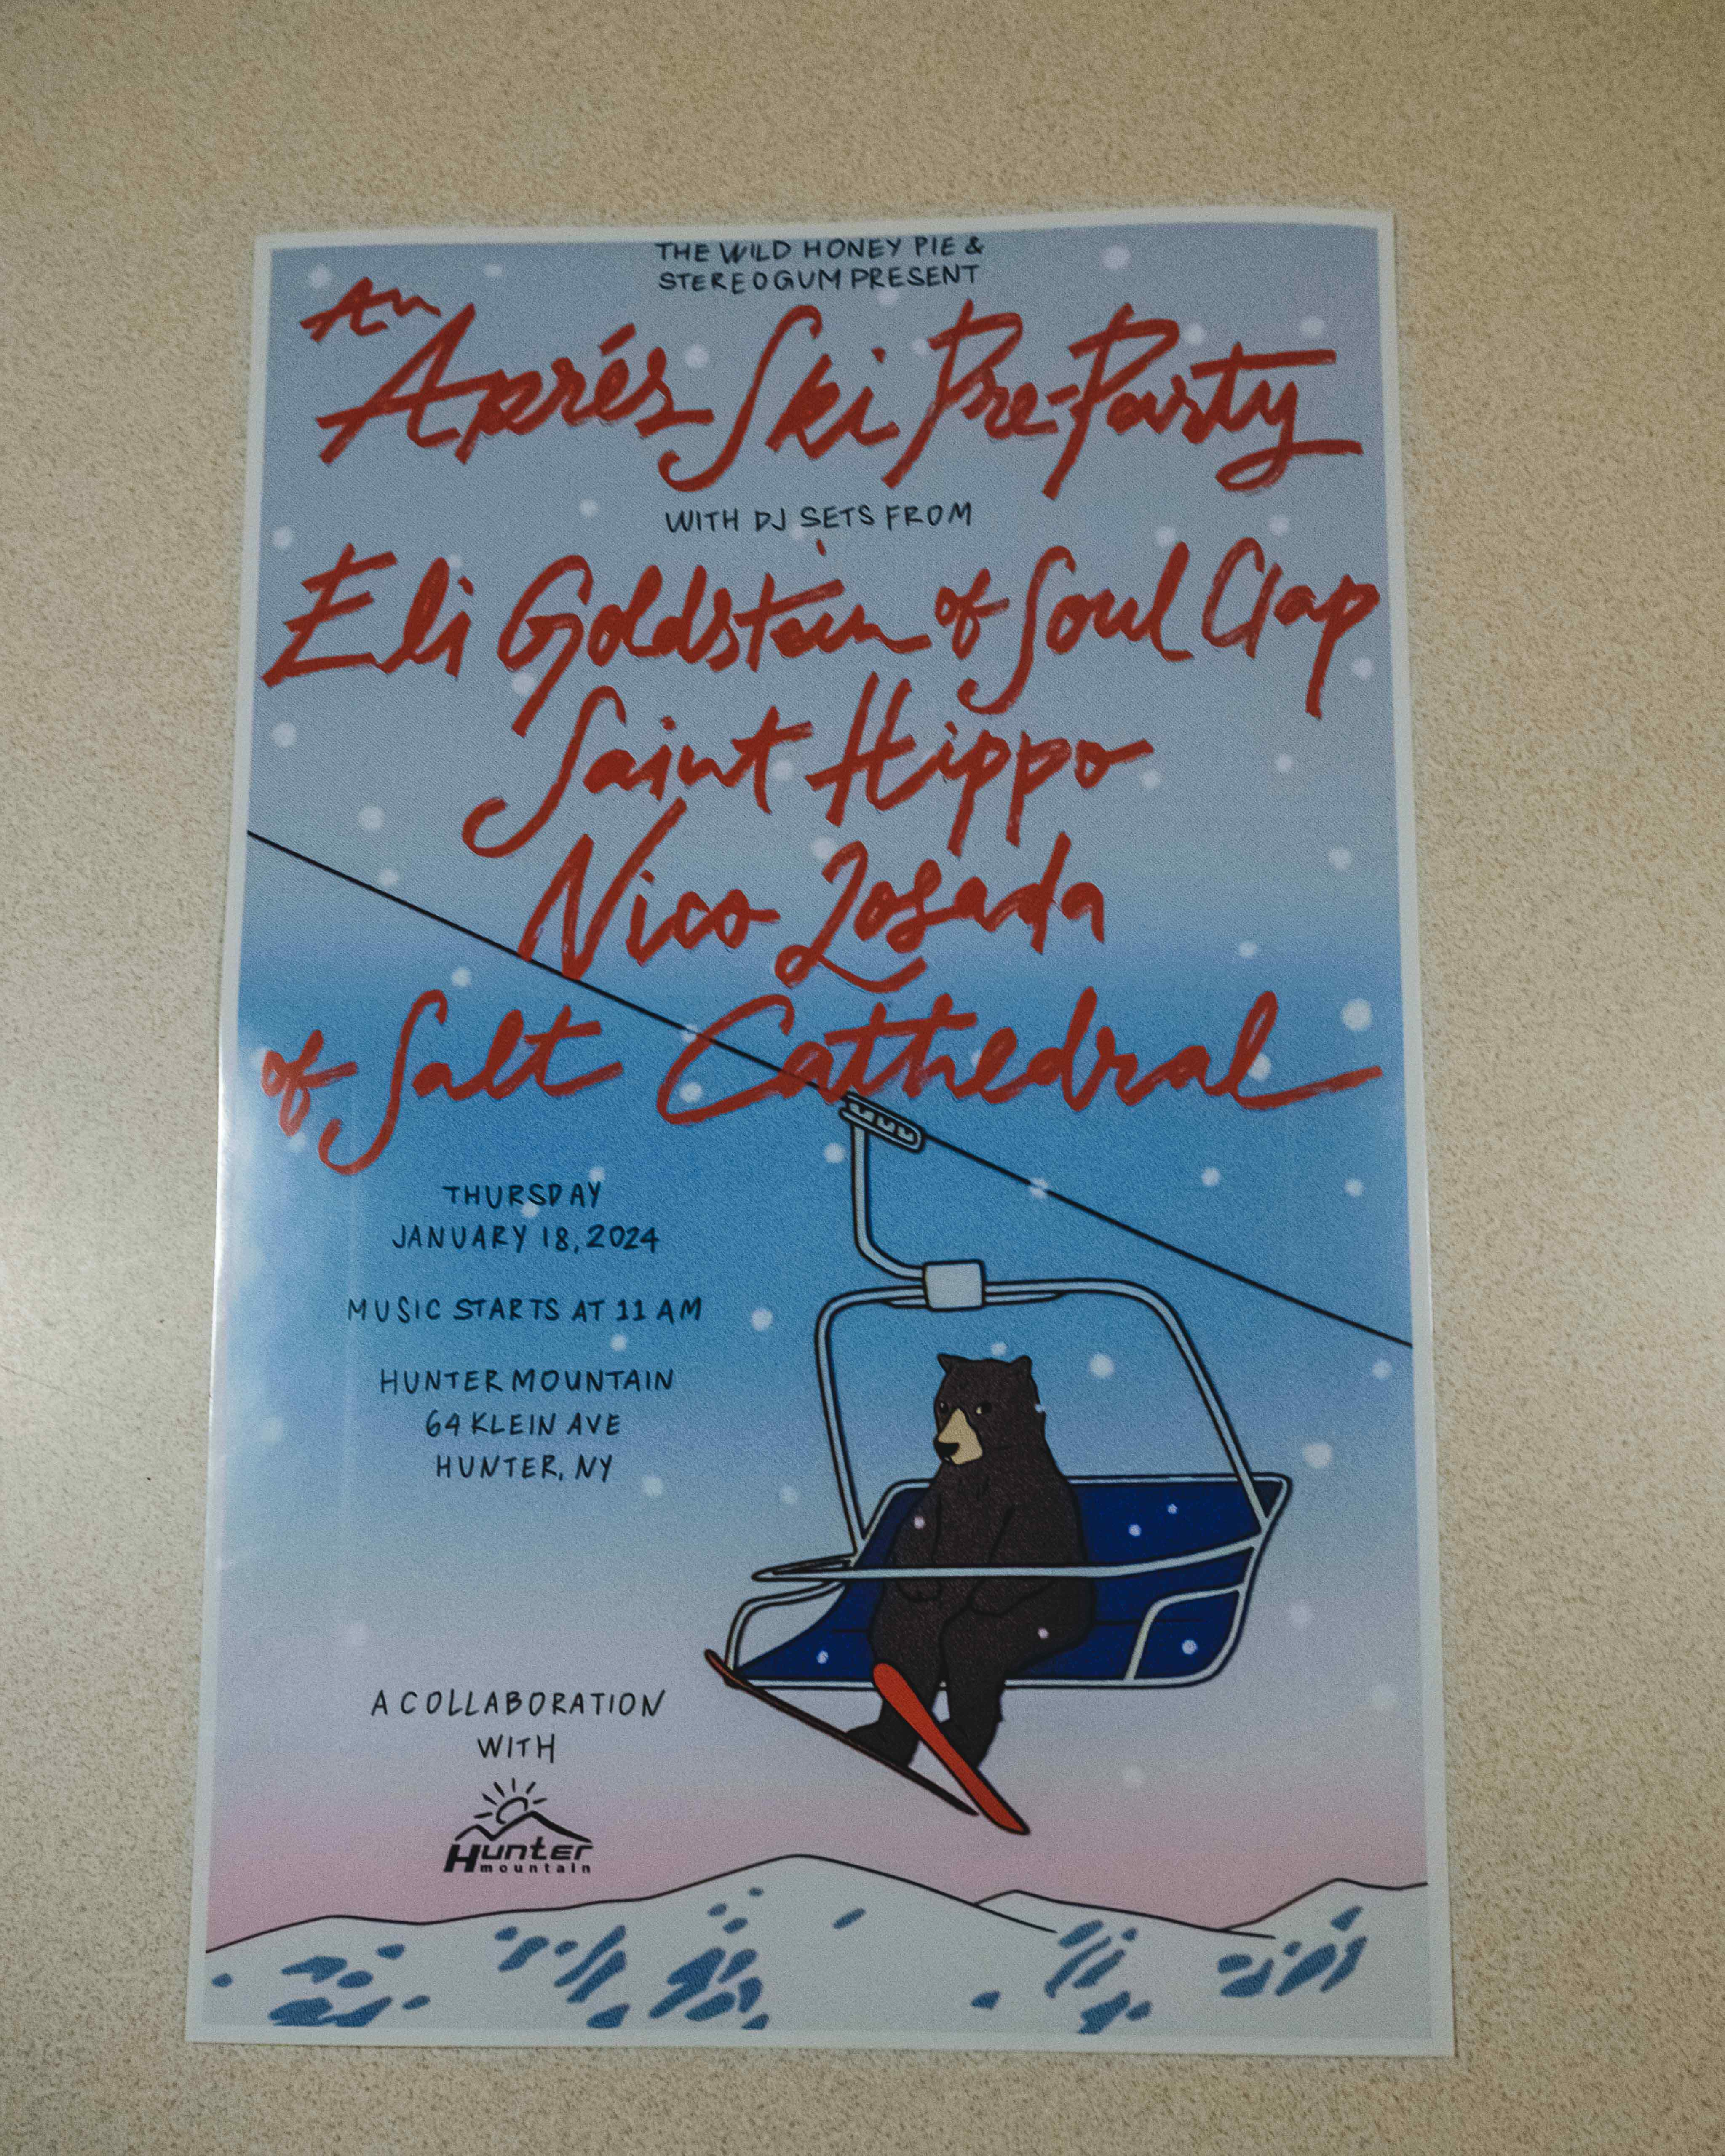 THE WILD HONEY PIE &
STEREOGUM PRESENT
An
Aprés Ski Pre-Party
WITH DJ SETS FROM
Eli Goldstein of Soul Clap
Saint Hippo
Nico Losada
of Salt Cathedral
THURSDAY
JANUARY 18, 2024
MUSIC STARTS AT 11 AM
HUNTER MOUNTAIN
64 KLEIN AVE
HUNTER, NY
A COLLABORATION
WITH
Hunter
mountain